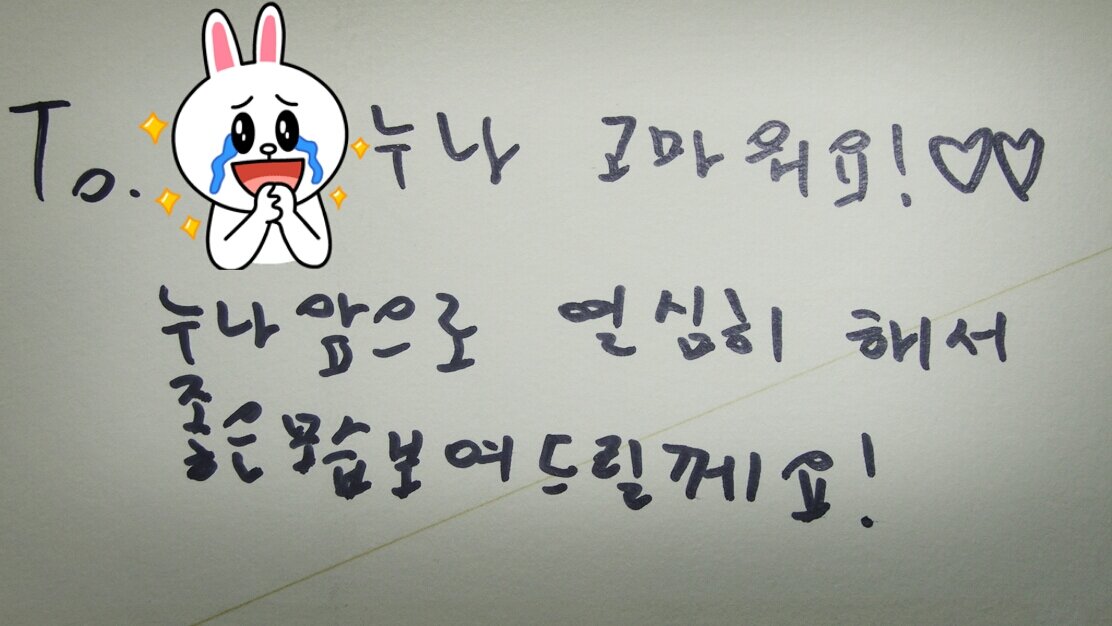 To. 누나 고마워요!♡♡
누나 앞으로 열심히 해서
좋은 모습 보여드릴께요!